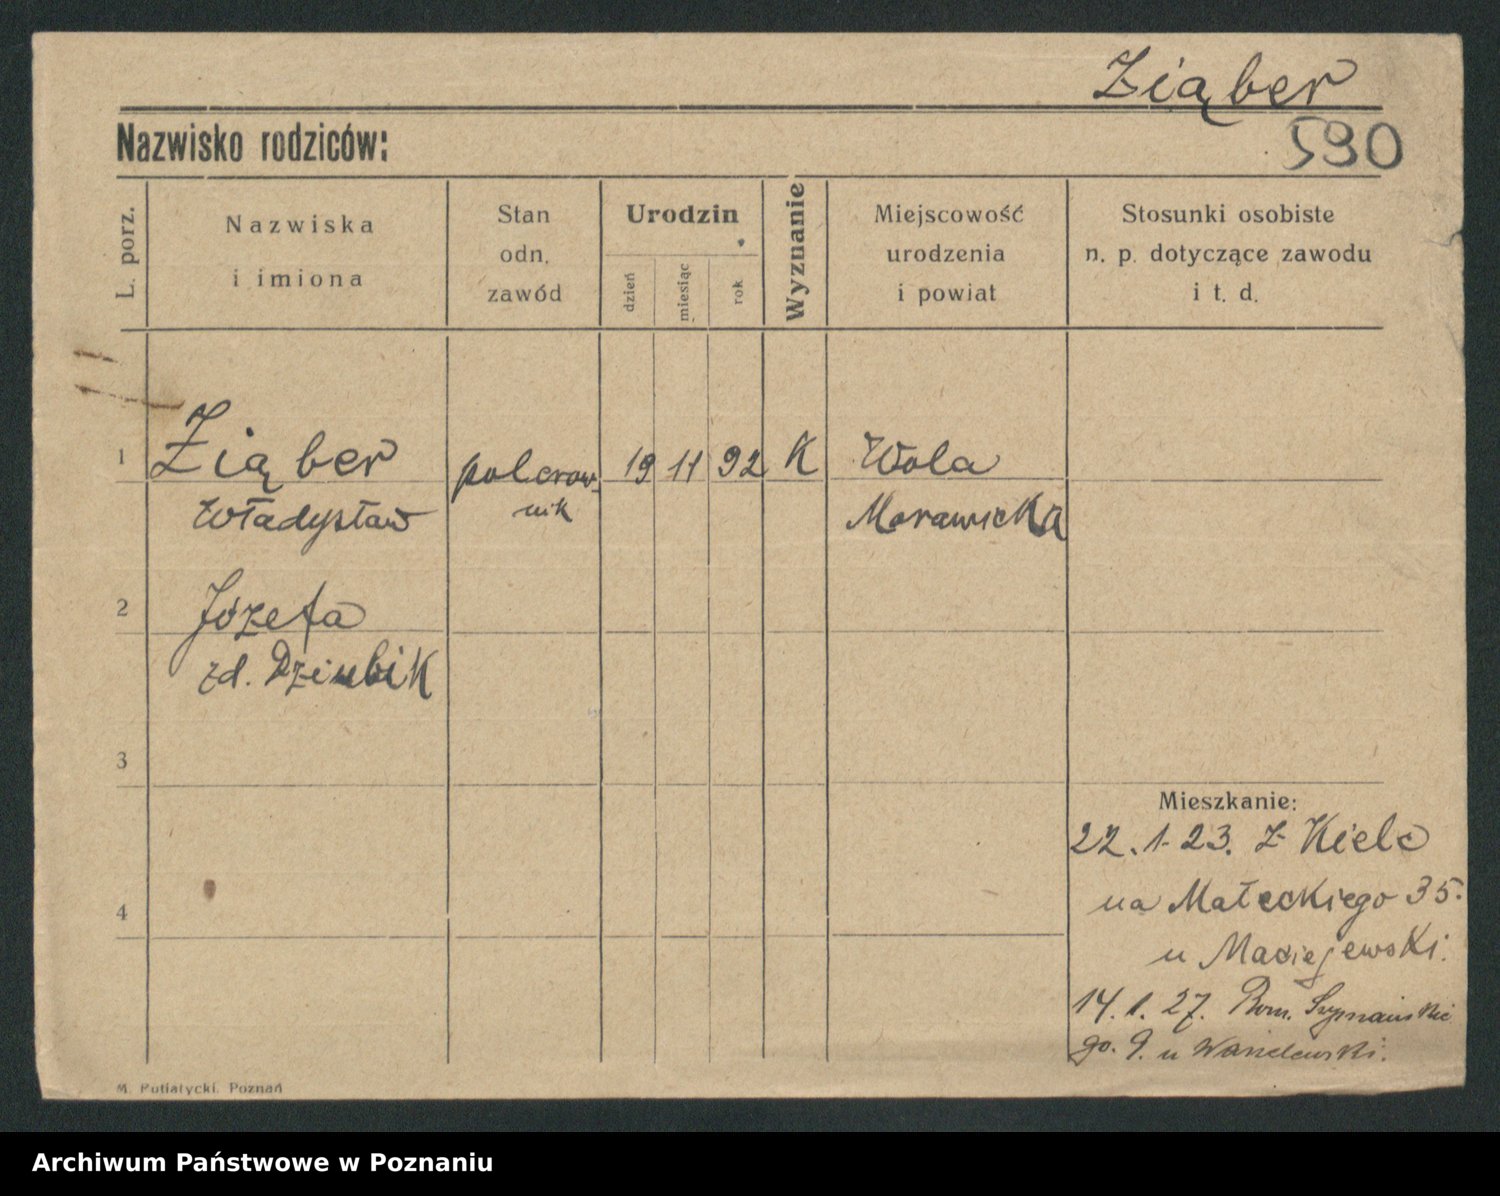 Ziąber
Nazwisko rodziców:
590
L. porz.
Nazwiska
i imiona
Stan
odn.
zawód
Urodzin
dzień
miesiąc
rok
Wyznanie
Miejscowość
urodzenia
i powiat
Stosunki osobiste
n. p. dotyczące zawodu
i t. d.
1
Ziąber
Władysław
polerow-
nik
19 11 92
K
Wola
Morawicka
2
Józefa
zd. Dziubik
3
4
Mieszkanie:
22. 1. 23. z Kielc
na Małeckiego 35.
u Maciejewski.
14. 1. 27. Rom. Szymańskie
go. 9. u
M. Putiatycki. Poznań
Archiwum Państwowe w Poznaniu